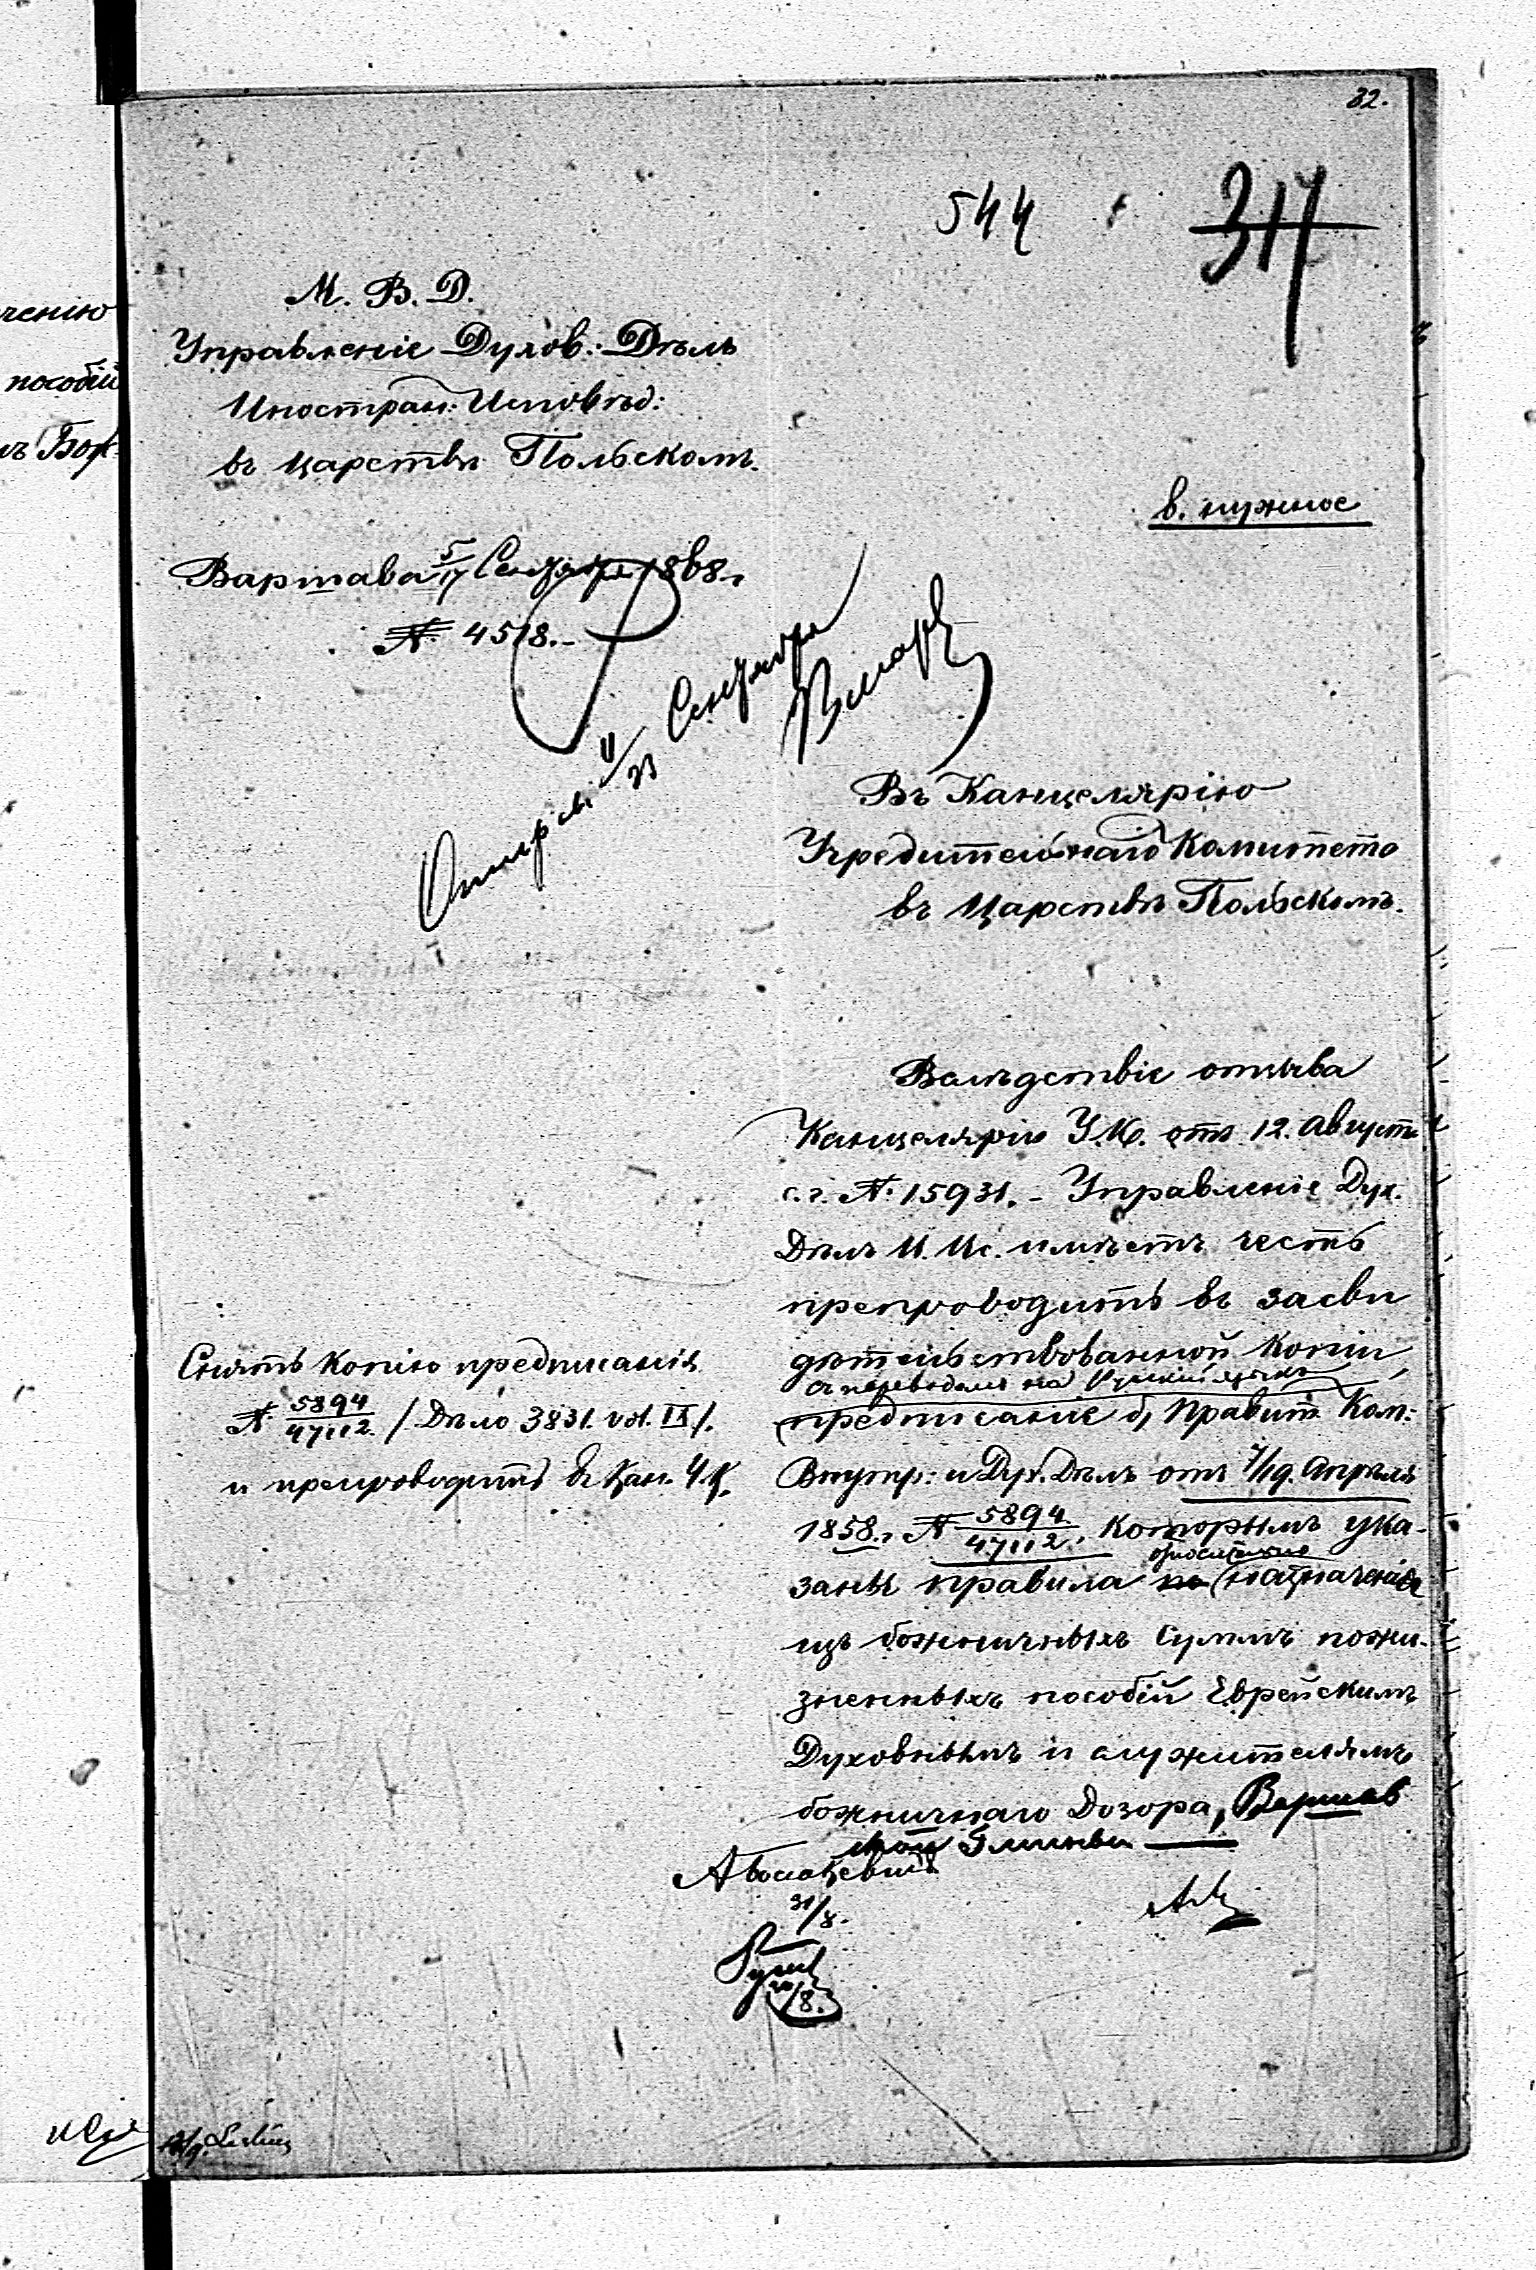 32.
544
317
М. В. Д.
Управленіе Духов: Дѣлъ
Иностран: Исповѣд:
въ Царствѣ Польскомъ.
в. нужное
Варшава 5/17 Сентября 1868 г.
№ 4518.-
11/23 Сентября
Въ Канцелярію
Учредительнаго Комитета
въ Царствѣ Польскомъ.
Вслѣдствіе отзыва
Канцеляріи У.К. отъ 12. Августа
с.г. № 15931. - Управленіе Дух.
Дѣлъ И. Ис. имѣетъ честь
препроводить въ засви
дѣтельствованной копіи,
съ переводомъ на Русскій языкъ
предписаніе б. Правит. Ком:
Внутр: и Дух. Дѣлъ отъ 7/19. Апрѣля
1858. г. № 5894/47112., которымъ ука-
заны правила относительно назначенія
изъ божничныхъ суммъ пожи-
зненныхъ пособій Еврейскимъ
Духовнымъ и служителямъ
божничнаго Дозора, Варшав
ской Гмины
Снять копію предписанія
№ 5894/47112. / Дѣло 3831. vol. IX /.
и препроводить въ Кан. У.К.
31/8.
/8.
ченію
пособій
Бож-